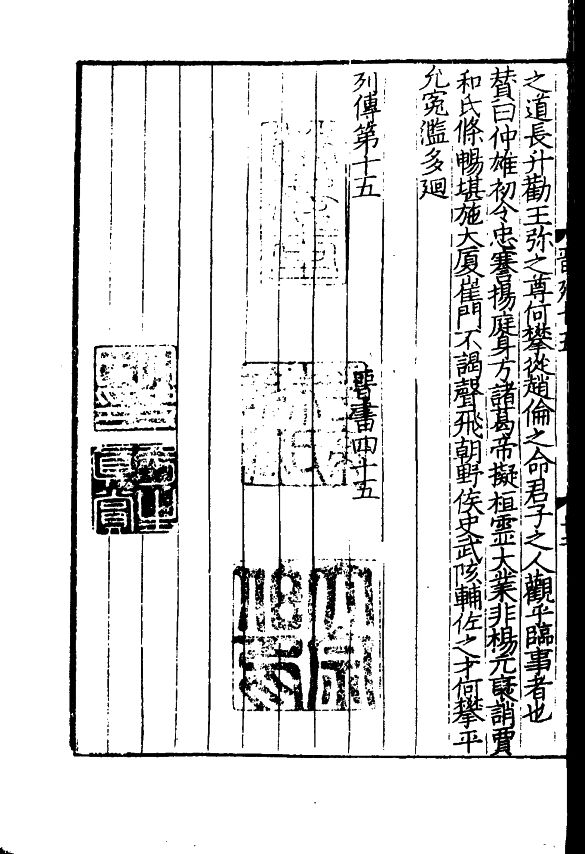 之道長升勸王弥之尊何攀從趙倫之命君子之人觀乎臨事者也
賛曰仲雄初令忠謇揚庭身方諸葛帝擬桓靈大業非楊元褧誚賈
和氏條暢堪施大厦崔門不謁聲飛朝野侯史武陔輔佐之才何攀平
允冤濫多廻
列傳第十五
晉書四十五